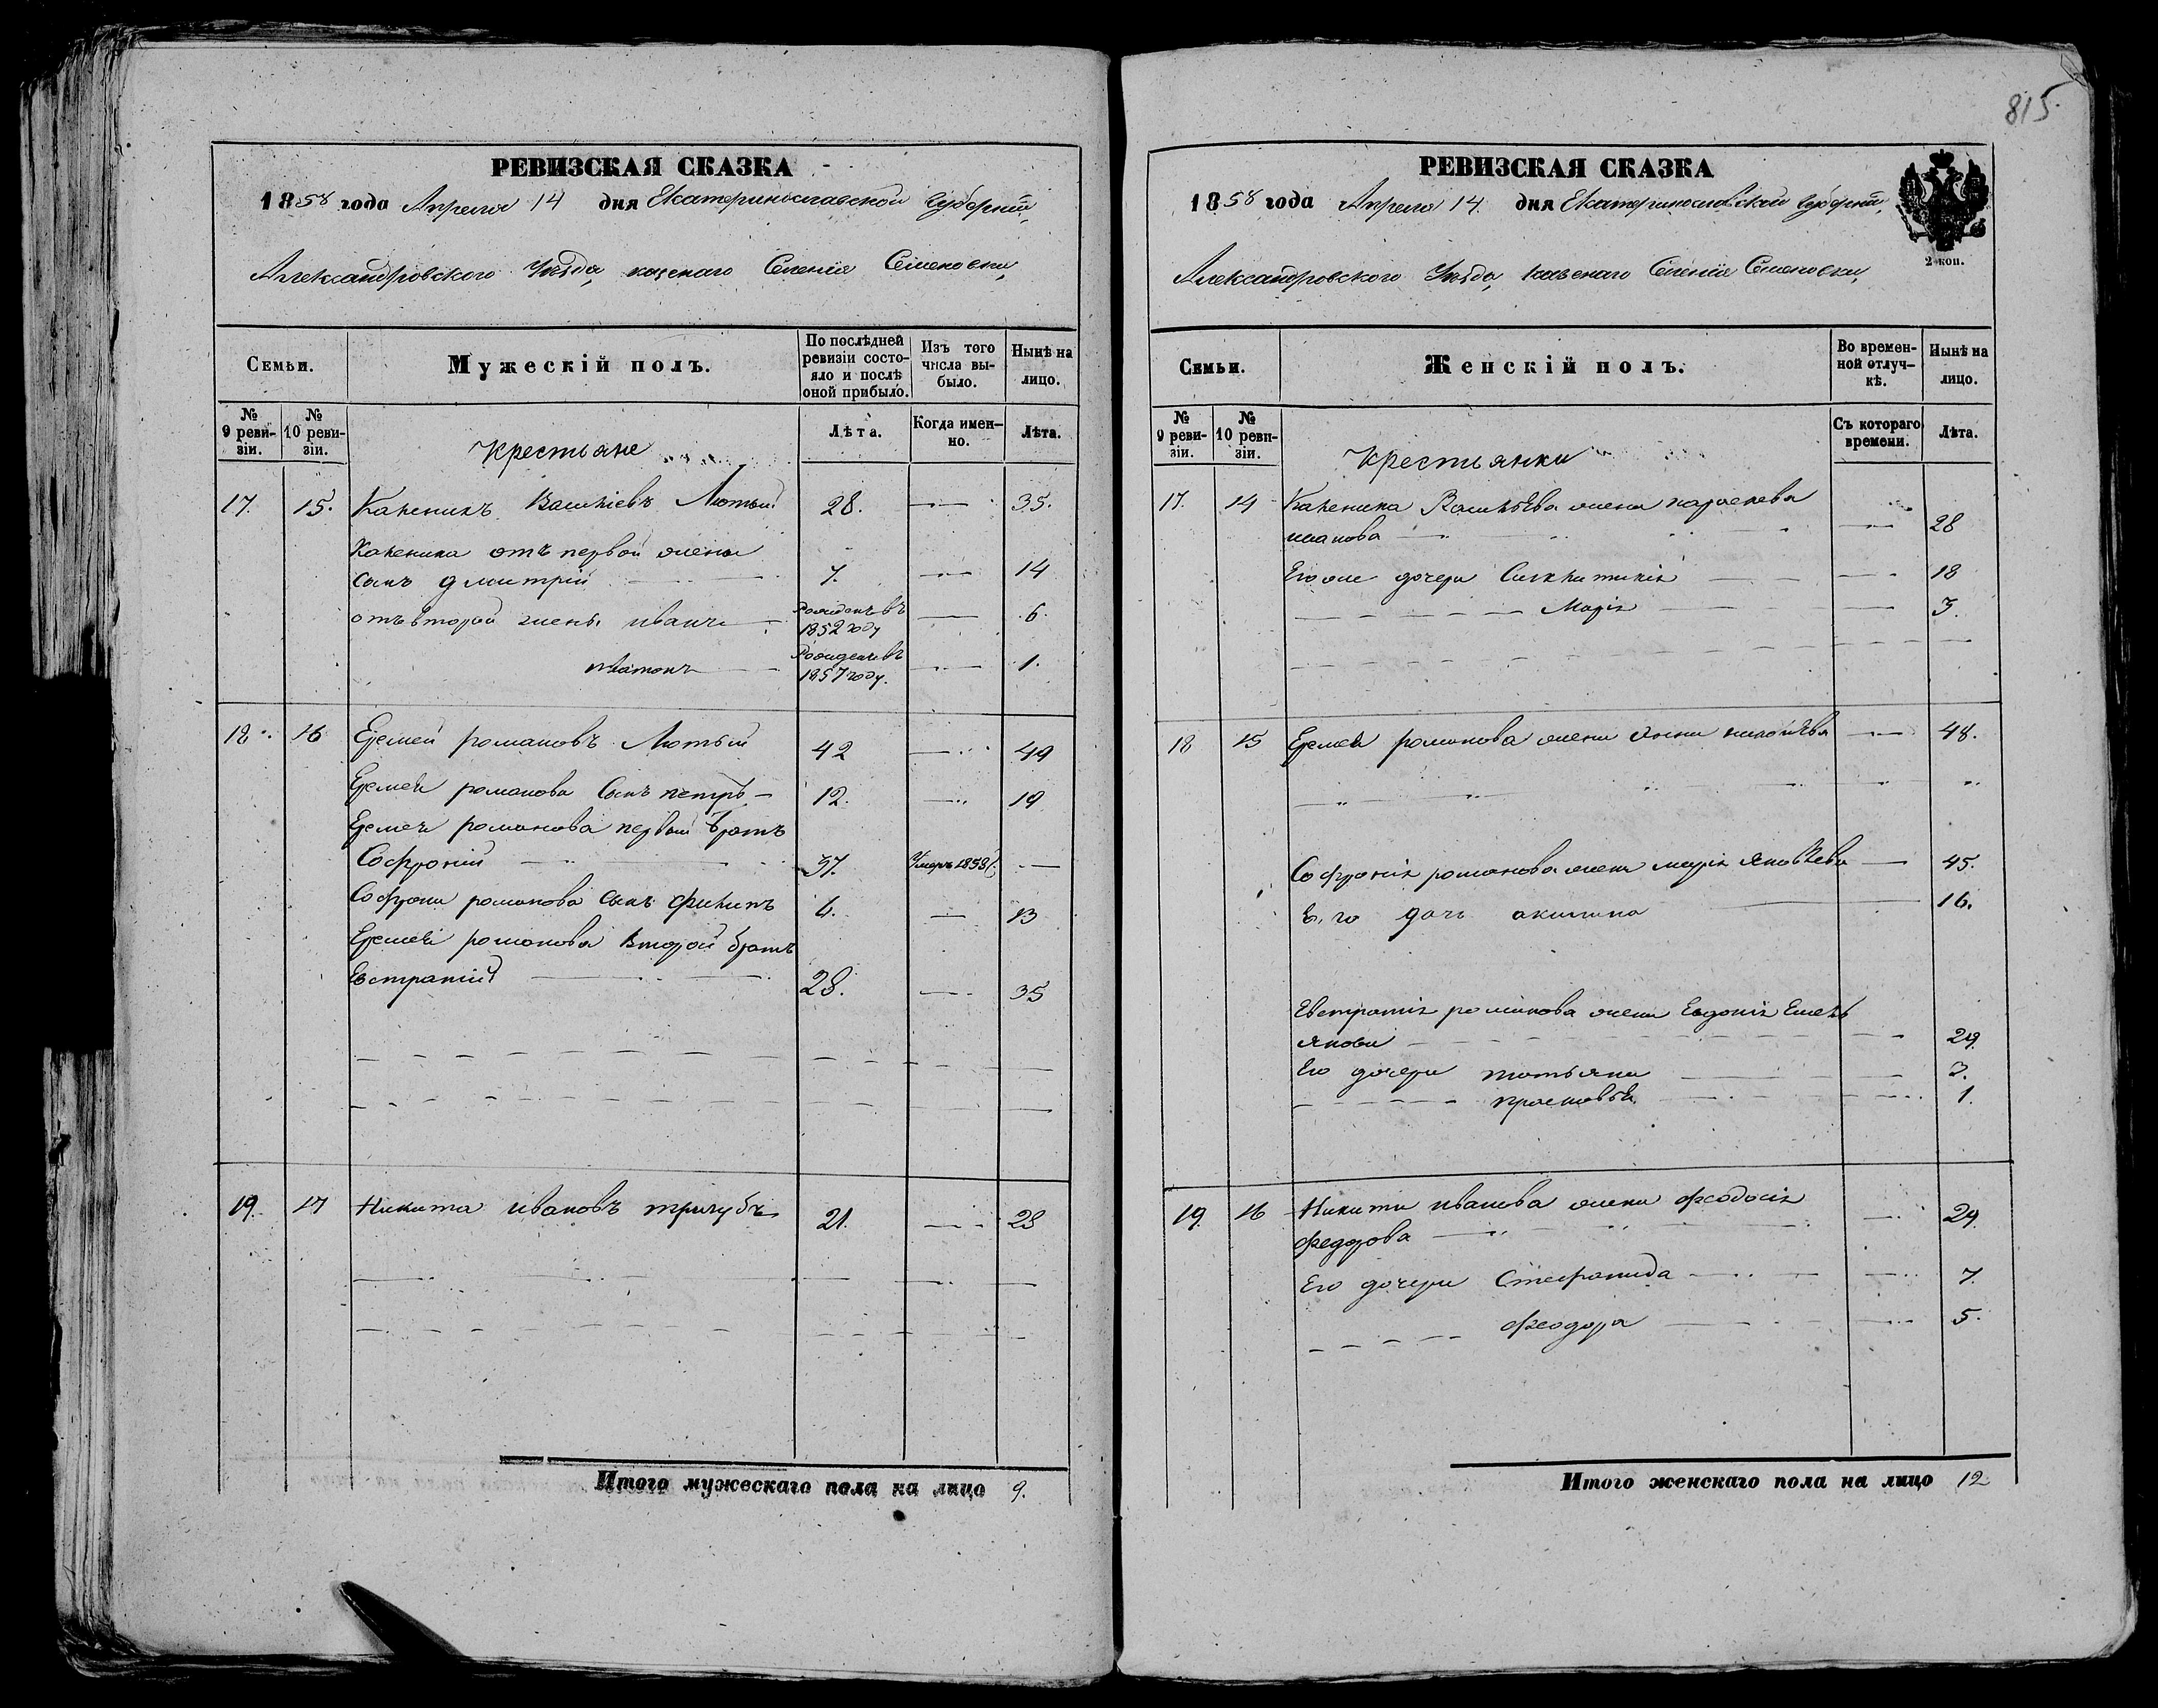 РЕВИЗСКАЯ СКАЗКА
1858 года Апреля 14 дня Екатеринославской Губерніи,
Александровского Уѣзда, казенаго Селенія Семеновки,
Семьи.
Мужескій полъ.
По послѣдней ревизіи состояло и послѣ оной прибыло.
Изъ того числа выбыло.
Нынѣ на лицо.
№ 9 ревизіи.
№ 10 ревизіи.
Крестьяне
Лѣта.
Когда именно.
Лѣта.
17. 15. Каленикъ Васильевъ Лютый 28. 35.
Каленика отъ первой жены
сынъ дмитрій 7. 14
отъ второй жены иванъ Рожденъ въ 1852 году 6.
платонъ Рожденъ въ 1857 году. 1.
18. 16 Еремей романовъ Лютый 42 49
Еремея романова сынъ петръ 12. 19
Еремея романова первый братъ
Софроній 37. Умеръ 1858
Софрона романова сынъ филипъ 6. 13
Еремея романова второй братъ
Евстратій 28. 35
19. 17 Никита ивановъ тригубъ 21. 28
Итого мужескаго пола на лицо 9.
815.
РЕВИЗСКАЯ СКАЗКА
1858 года Апреля 14. дня Екатеринославской Губерніи,
2 коп.
Александровского Уѣзда, казенаго Селенія Семеновки,
Семьи.
Женскій полъ.
Во временной отлучкѣ.
Нынѣ на лицо.
№ 9 ревизіи.
№ 10 ревизіи.
Крестьянки
Съ котораго времени.
Лѣта.
17. 14 Каленика Васильева жена
иванова 28
Его же дочери 18
Марія 3.
18 15 Еремея романова жена анна 48.
Софронія романова жена марія яковлева 45.
Его дочь акилина 16.
Евстратія романова жена Евдокія Емель
янова 29.
Его дочери татьяна 3.
прасковья 1.
19. 16 Никиты иванова жена феодосія
федорова 29.
Его дочери Стефанида 7.
феодора 5.
Итого женскаго пола на лицо 12.